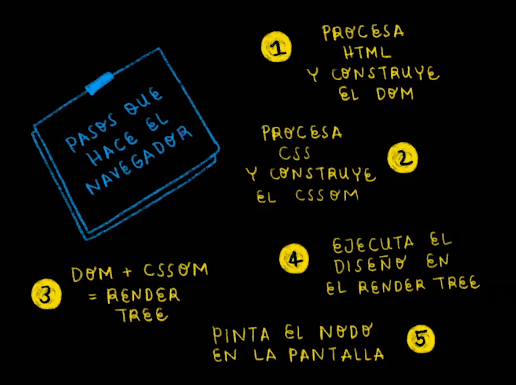 PASOS QUE
HACE EL
NAVEGADOR
1
PROCESA
HTML
Y CONSTRUYE
EL DOM
PROCESA
CSS
Y CONSTRUYE
EL CSSOM
2
3
DOM + CSSOM
= RENDER
TREE
4
EJECUTA EL
DISEÑO EN
EL RENDER TREE
PINTA EL NODO
EN LA PANTALLA
5